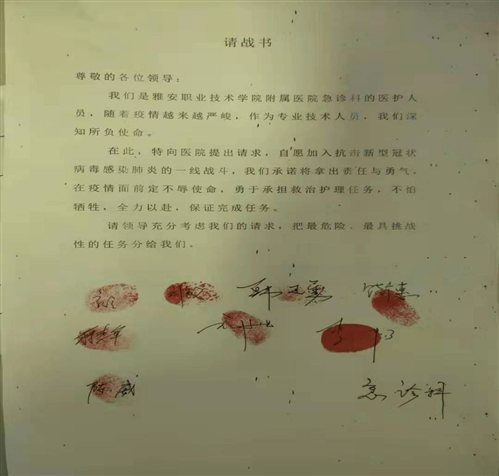 请战书
尊敬的各位领导:
我们是雅安职业技术学院附属医院急诊科的医护人
员，随着疫情越来越严峻，作为专业技术人员，我们深
知所负使命。
在此，特向医院提出请求，自愿加入抗击新型冠状
病毒感染肺炎的一线战斗，我们承诺将拿出责任与勇气，
在疫情面前定不辱使命，勇于承担救治护理任务，不怕
牺牲，全力以赴，保证完成任务。
请领导充分考虑我们的请求，把最危险、最具挑战
性的任务分给我们。
陈威 急诊科